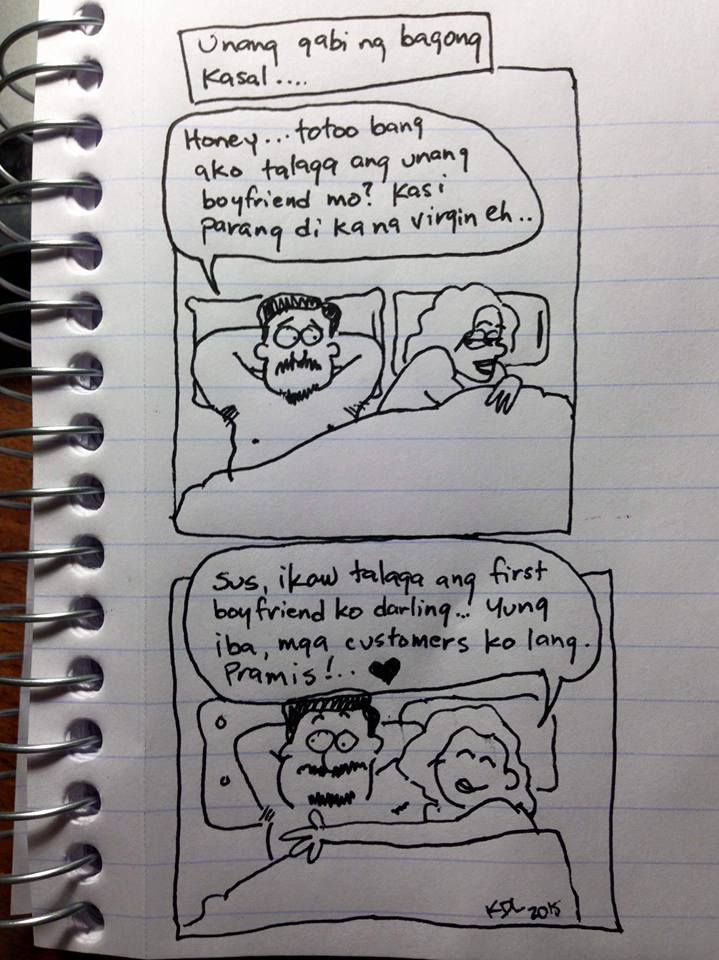 Unang gabi ng bagong
Kasal....
Honey...totoo bang
ako talaga ang unang
boyfriend mo? Kasi
parang di ka na virgin eh..
Sus, ikaw talaga ang first
boyfriend ko darling... Yung
iba, mga customers ko lang.
Pramis!.. ♥
KDL 2015